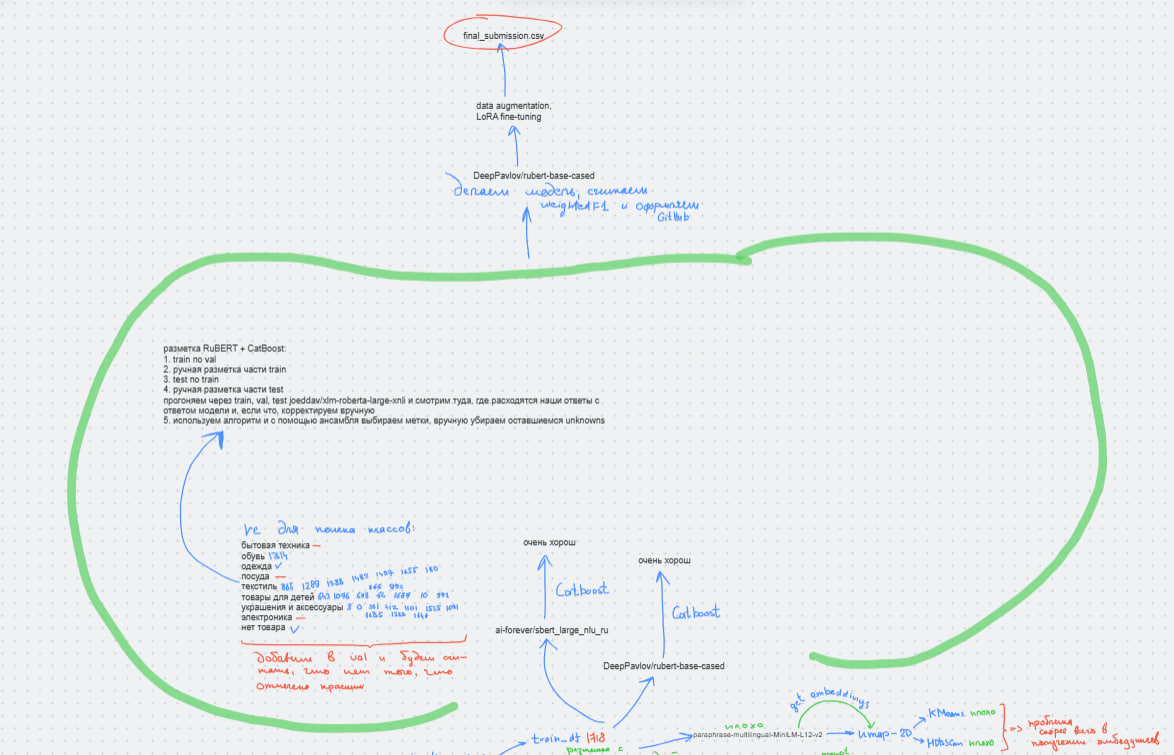 final_submission.csv
data augmentation,
LoRA fine-tuning
DeepPavlov/rubert-base-cased
делаем модель, считаем
weighted F1 и оформляем
GitHub
разметка RuBERT + CatBoost:
1. train по val
2. ручная разметка части train
3. test по train
4. ручная разметка части test
прогоняем через train, val, test joeddav/xlm-roberta-large-xnli и смотрим туда, где расходятся наши ответы с
ответом модели и, если что, корректируем вручную
5. используем алгоритм и с помощью ансамбля выбираем метки, вручную убираем оставшиемся unknowns
re для поиска классов:
бытовая техника —
обувь 1314
одежда
посуда —
текстиль 865 1289 1388 1487 1497 1655 180
товары для детей
украшения и аксессуары
электроника —
нет товара
добавим в val и будем счи-
тать, что нет того, что
отмечено красным
очень хорош
Catboost
ai-forever/sbert_large_nlu_ru
очень хорош
Catboost
DeepPavlov/rubert-base-cased
train_df 1718
разметка с
плохо
paraphrase-multilingual-MiniLM-L12-v2
get embeddings
umap-2D
KMeans плохо
HDBScan плохо
=> проблема
скорее всего в
получении эмбеддингов